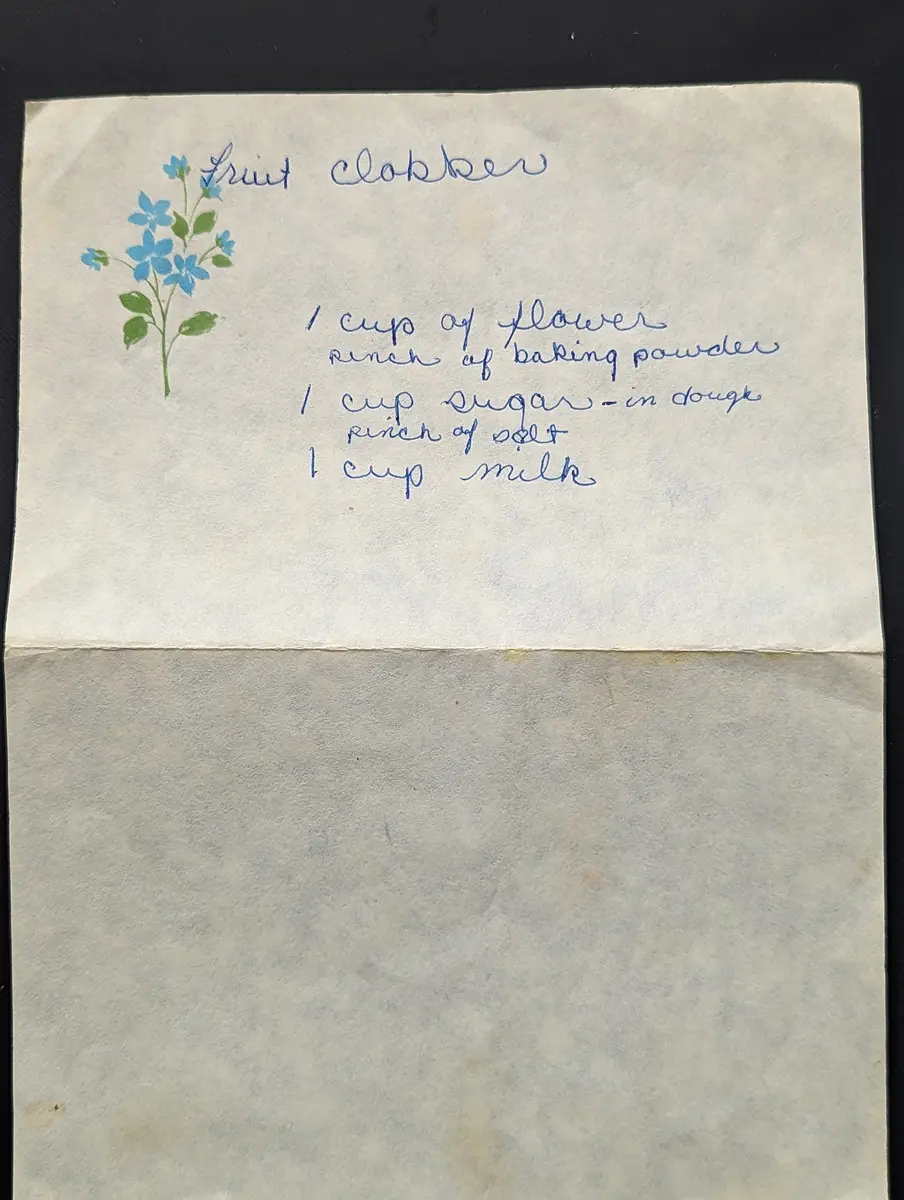 Fruit clobber
1 cup of flower
pinch of baking powder
1 cup sugar - in dough
pinch of salt
1 cup milk